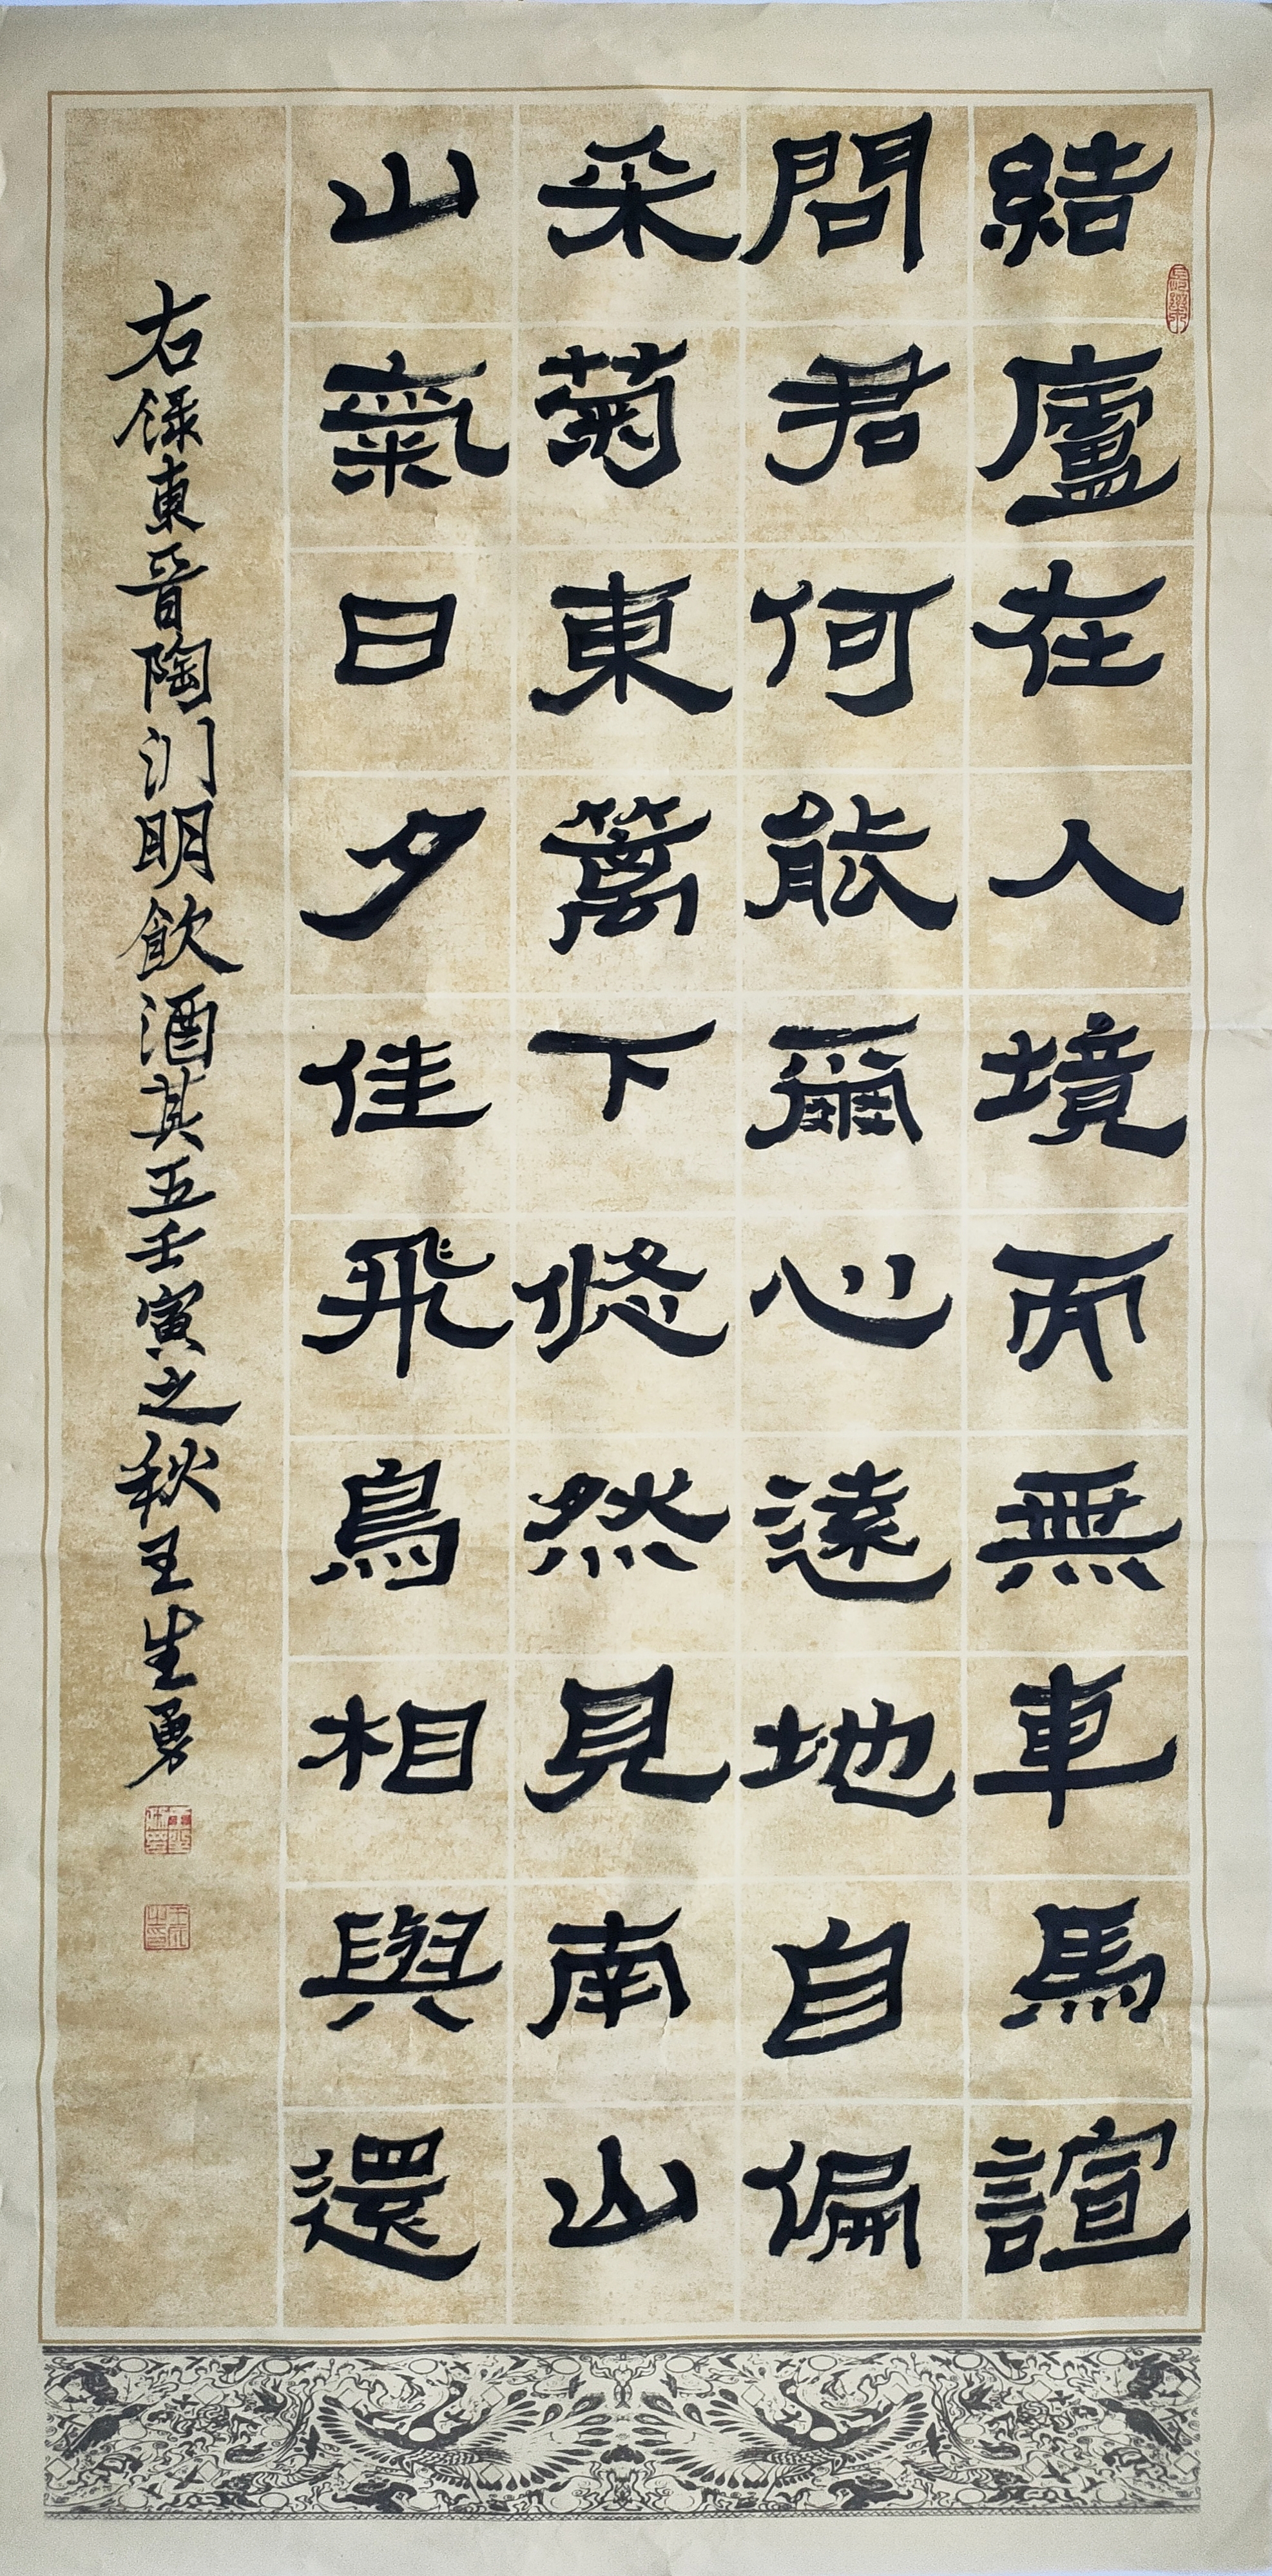 結廬在人境而無車馬諠
問君何能爾心遠地自偏
采菊東籬下悠然見南山
山氣日夕佳飛鳥相與還
右録東晉陶渊明飲酒其五壬寅之秋王生勇